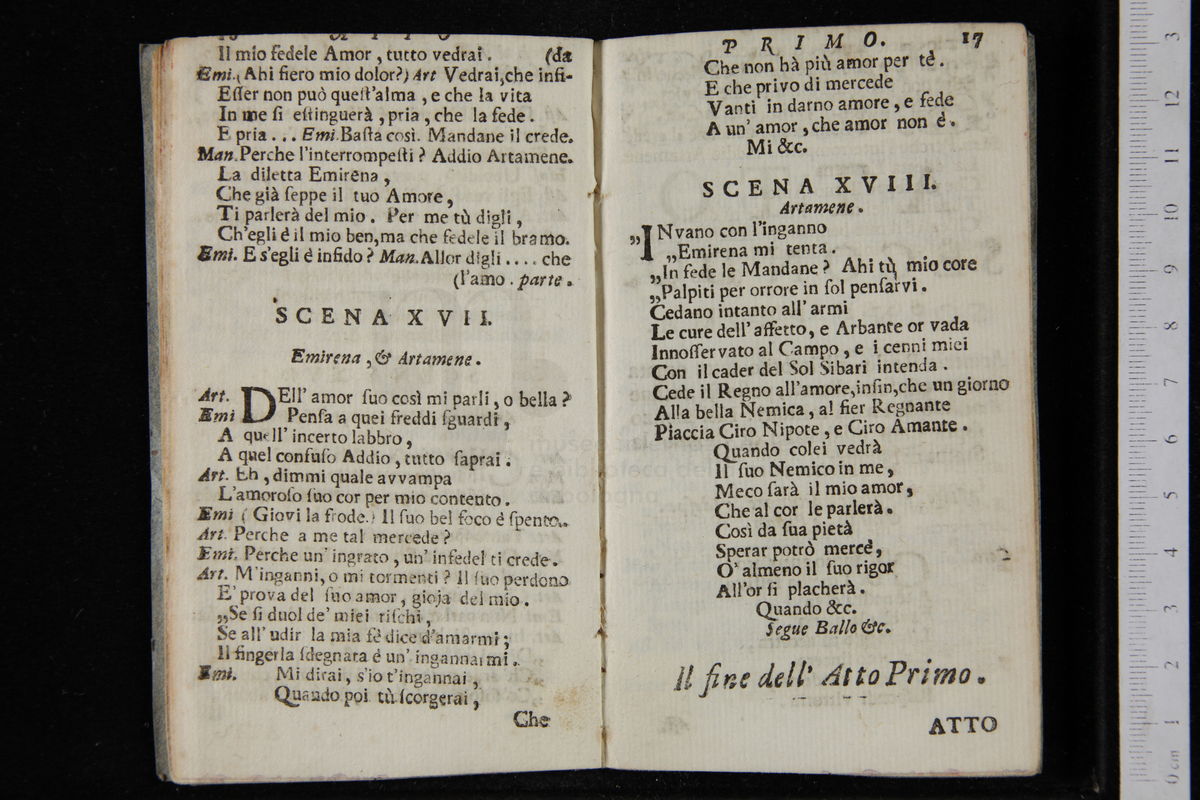 Il mio fedele Amor, tutto vedrai. (da
Emi. (Ahi fiero mio dolor?) Art Vedrai, che infi-
Eſſer non può queſt'alma, e che la vita
In me ſi eſtinguerà, pria, che la fede.
E pria... Emi. Baſta così. Mandane il crede.
Man. Perche l'interrompeſti? Addio Artamene.
La diletta Emirena,
Che già ſeppe il tuo Amore,
Ti parlerà del mio. Per me tù digli,
Ch'egli è il mio ben, ma che fedele il bramo.
Emi. E s'egli è infido? Man. Allor digli.... che
(l'amo. parte.
SCENA XVII.
Emirena, & Artamene.
Art. DEll'amor ſuo così mi parli, o bella?
Emi Penſa a quei freddi ſguardi,
A quell'incerto labbro,
A quel confuſo Addio, tutto ſaprai.
Art. Eh, dimmi quale avvampa
L'amoroſo ſuo cor per mio contento.
Emi ( Giovi la frode.) Il ſuo bel foco é ſpento..
Art. Perche a me tal mercede?
Emi. Perche un'ingrato, un'infedel ti crede.
Art. M'inganni, o mi tormenti? Il ſuo perdono
E' prova del ſuo amor, gioja del mio.
„Se ſi duol de' miei riſchi,
Se all'udir la mia fè dice d'amarmi;
Il fingerla ſdegnata é un'ingannarmi.
Emi. Mi dirai, s'io t'ingannai,
Quando poi tù ſcorgerai,
Che
PRIMO. 17
Che non hà più amor per tè.
E che privo di mercede
Vanti in darno amore, e fede
A un'amor, che amor non è.
Mi &c.
SCENA XVIII.
Artamene.
„INvano con l'inganno
„Emirena mi tenta.
„In fede le Mandane? Ahi tù mio core
„Palpiti per orrore in ſol penſarvi.
Cedano intanto all'armi
Le cure dell'affetto, e Arbante or vada
Innoſſervato al Campo, e i cenni miei
Con il cader del Sol Sibari intenda.
Cede il Regno all'amore, infin, che un giorno
Alla bella Nemica, al fier Regnante
Piaccia Ciro Nipote, e Ciro Amante.
Quando colei vedrà
Il ſuo Nemico in me,
Meco ſarà il mio amor,
Che al cor le parlerà.
Così da ſua pietà
Sperar potrò mercè,
O' almeno il ſuo rigor
All'or ſi placherà.
Quando &c.
Segue Ballo &c.
Il fine dell'Atto Primo.
ATTO